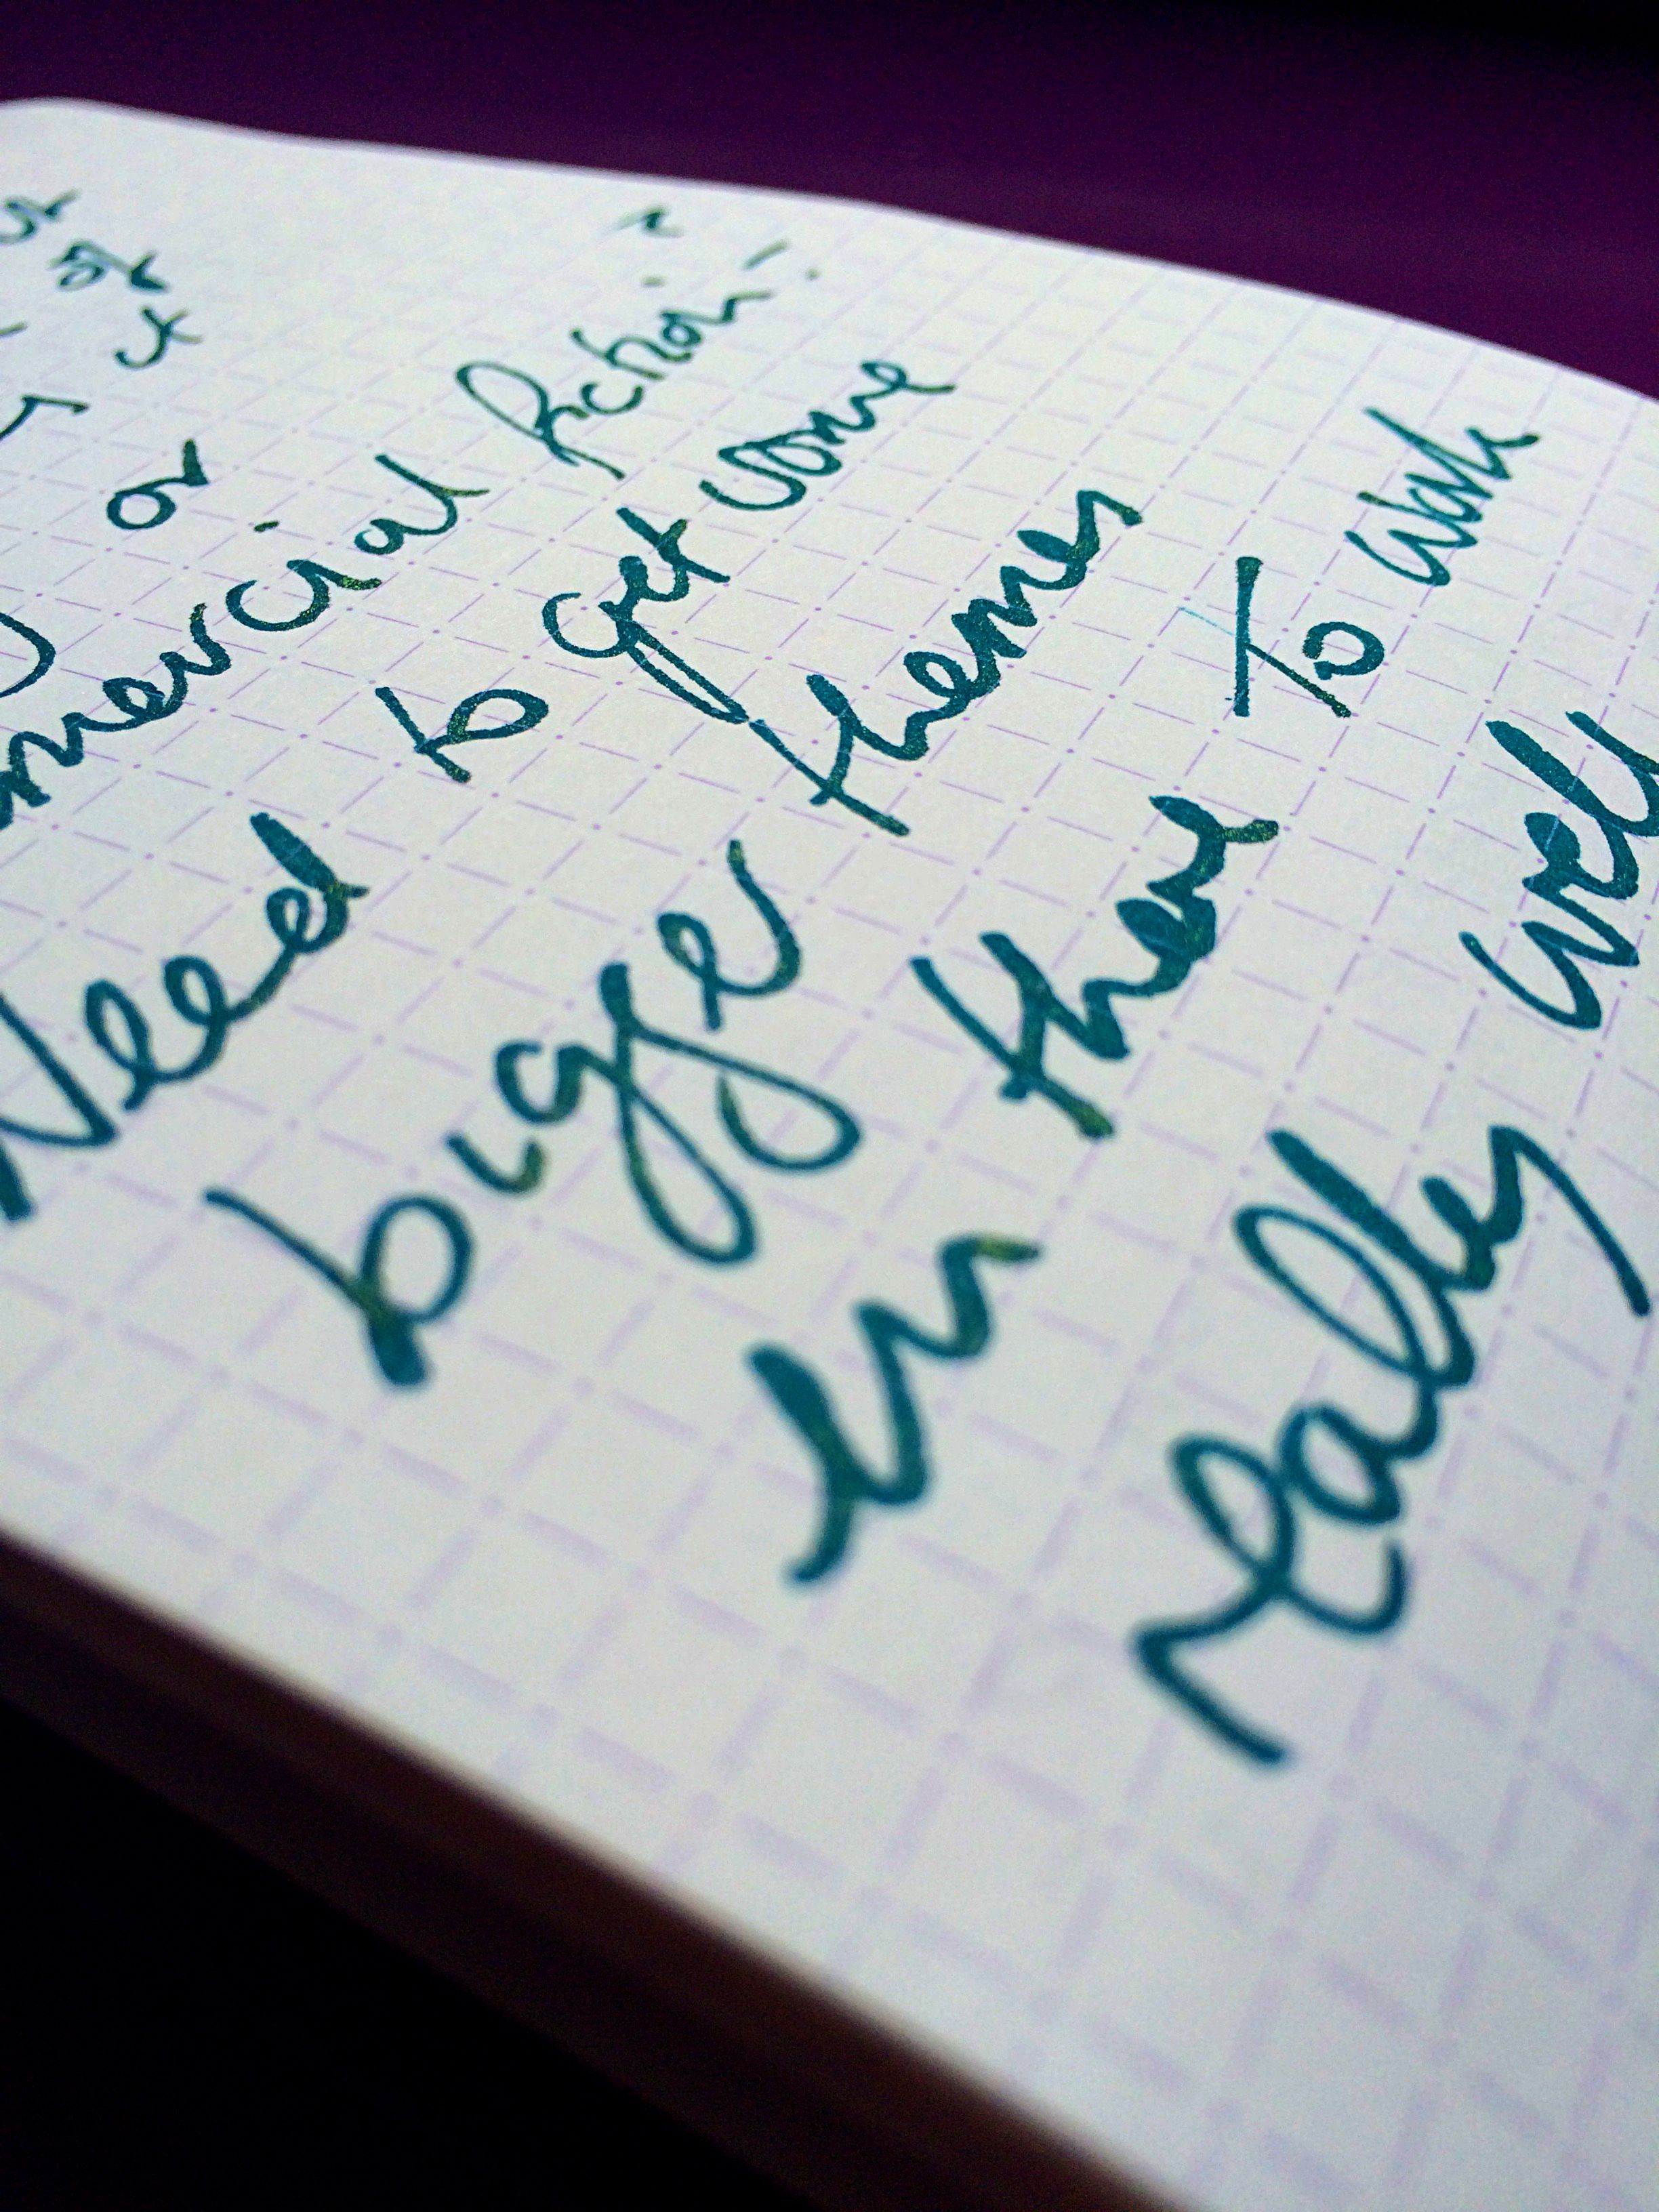 or
mercial fiction.
Need to get some
bigger themes
in there To work
really well